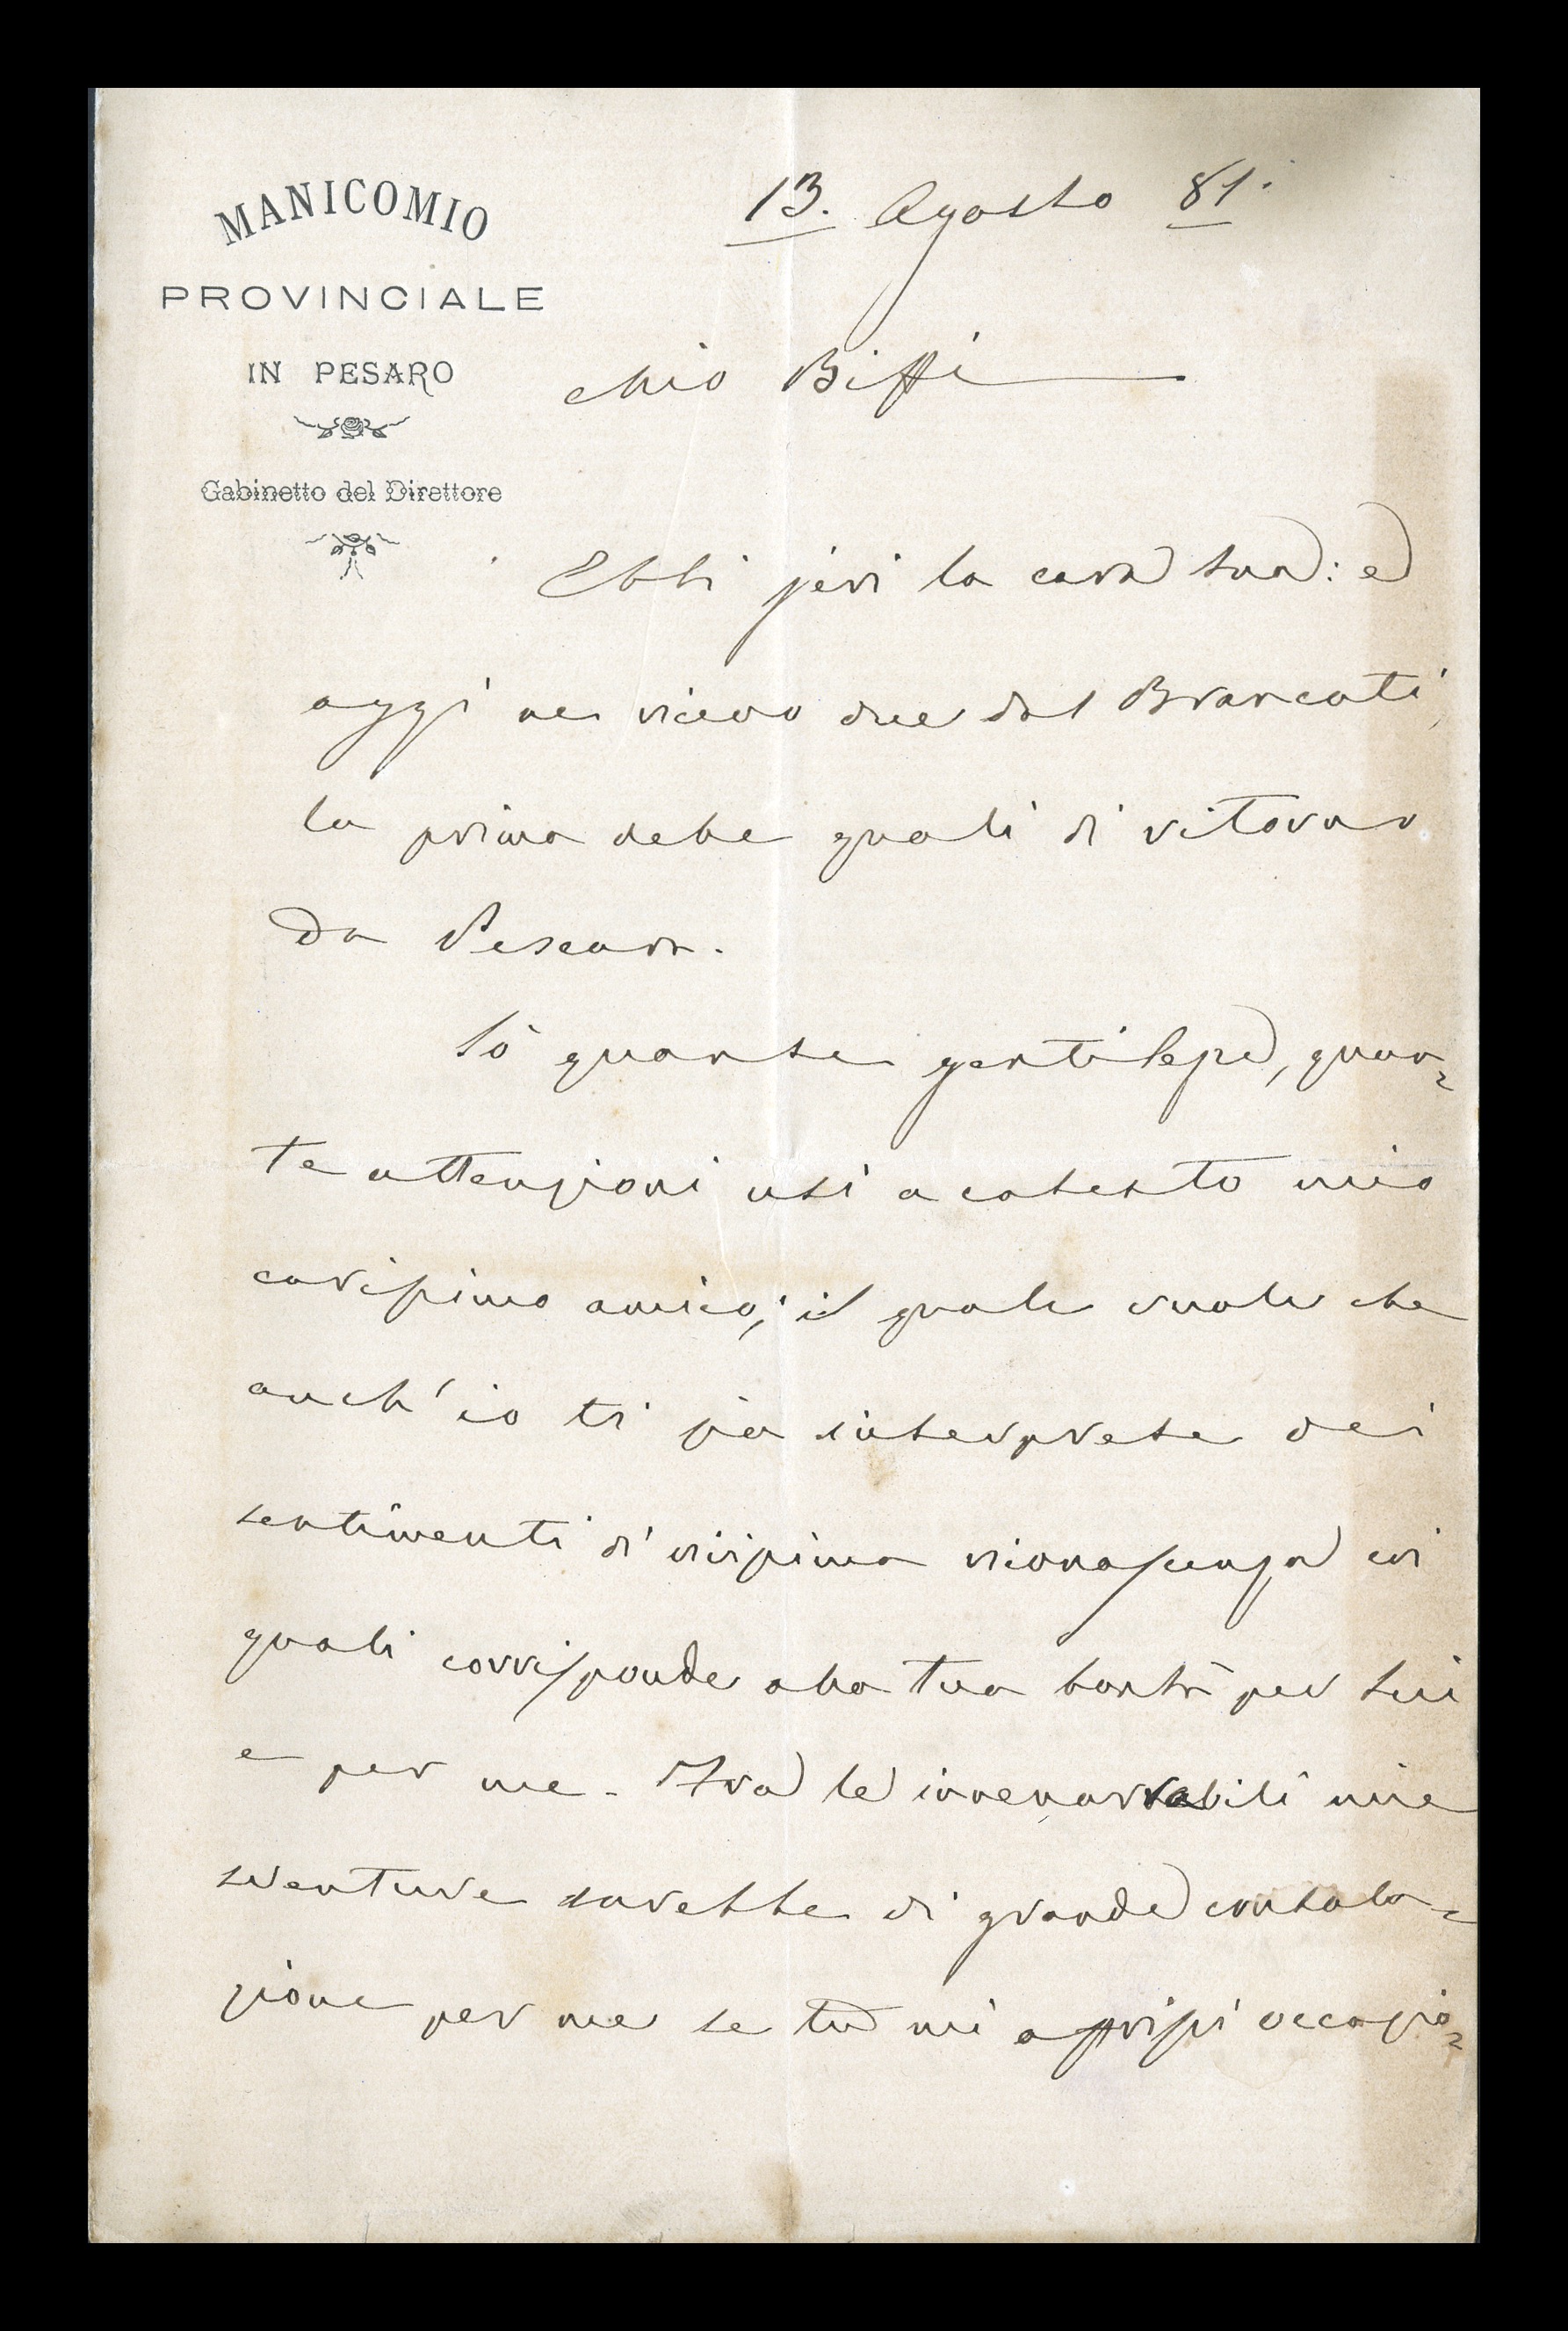 MANICOMIO
PROVINCIALE
IN PESARO
Gabinetto del Direttore
13. Agosto 81.
Mio Biffi
Ebbi jeri la cara tua: e
oggi ne ricevo due dal Brancati,
la prima delle quali di ritorno
da Pescara.
So quante gentilezze, quan=
te attenzioni usi a cotesto mio
carissimo amico; il quale vuole che
anch'io ti sia interprete dei
sentimenti di vivissima riconoscenza coi
quali corrisponde alla tua bontà per lui
e per me. Fra le innenarrabili mie
sventure sarebbe di grande consola=
zione per me se tu mi offrissi occasio=